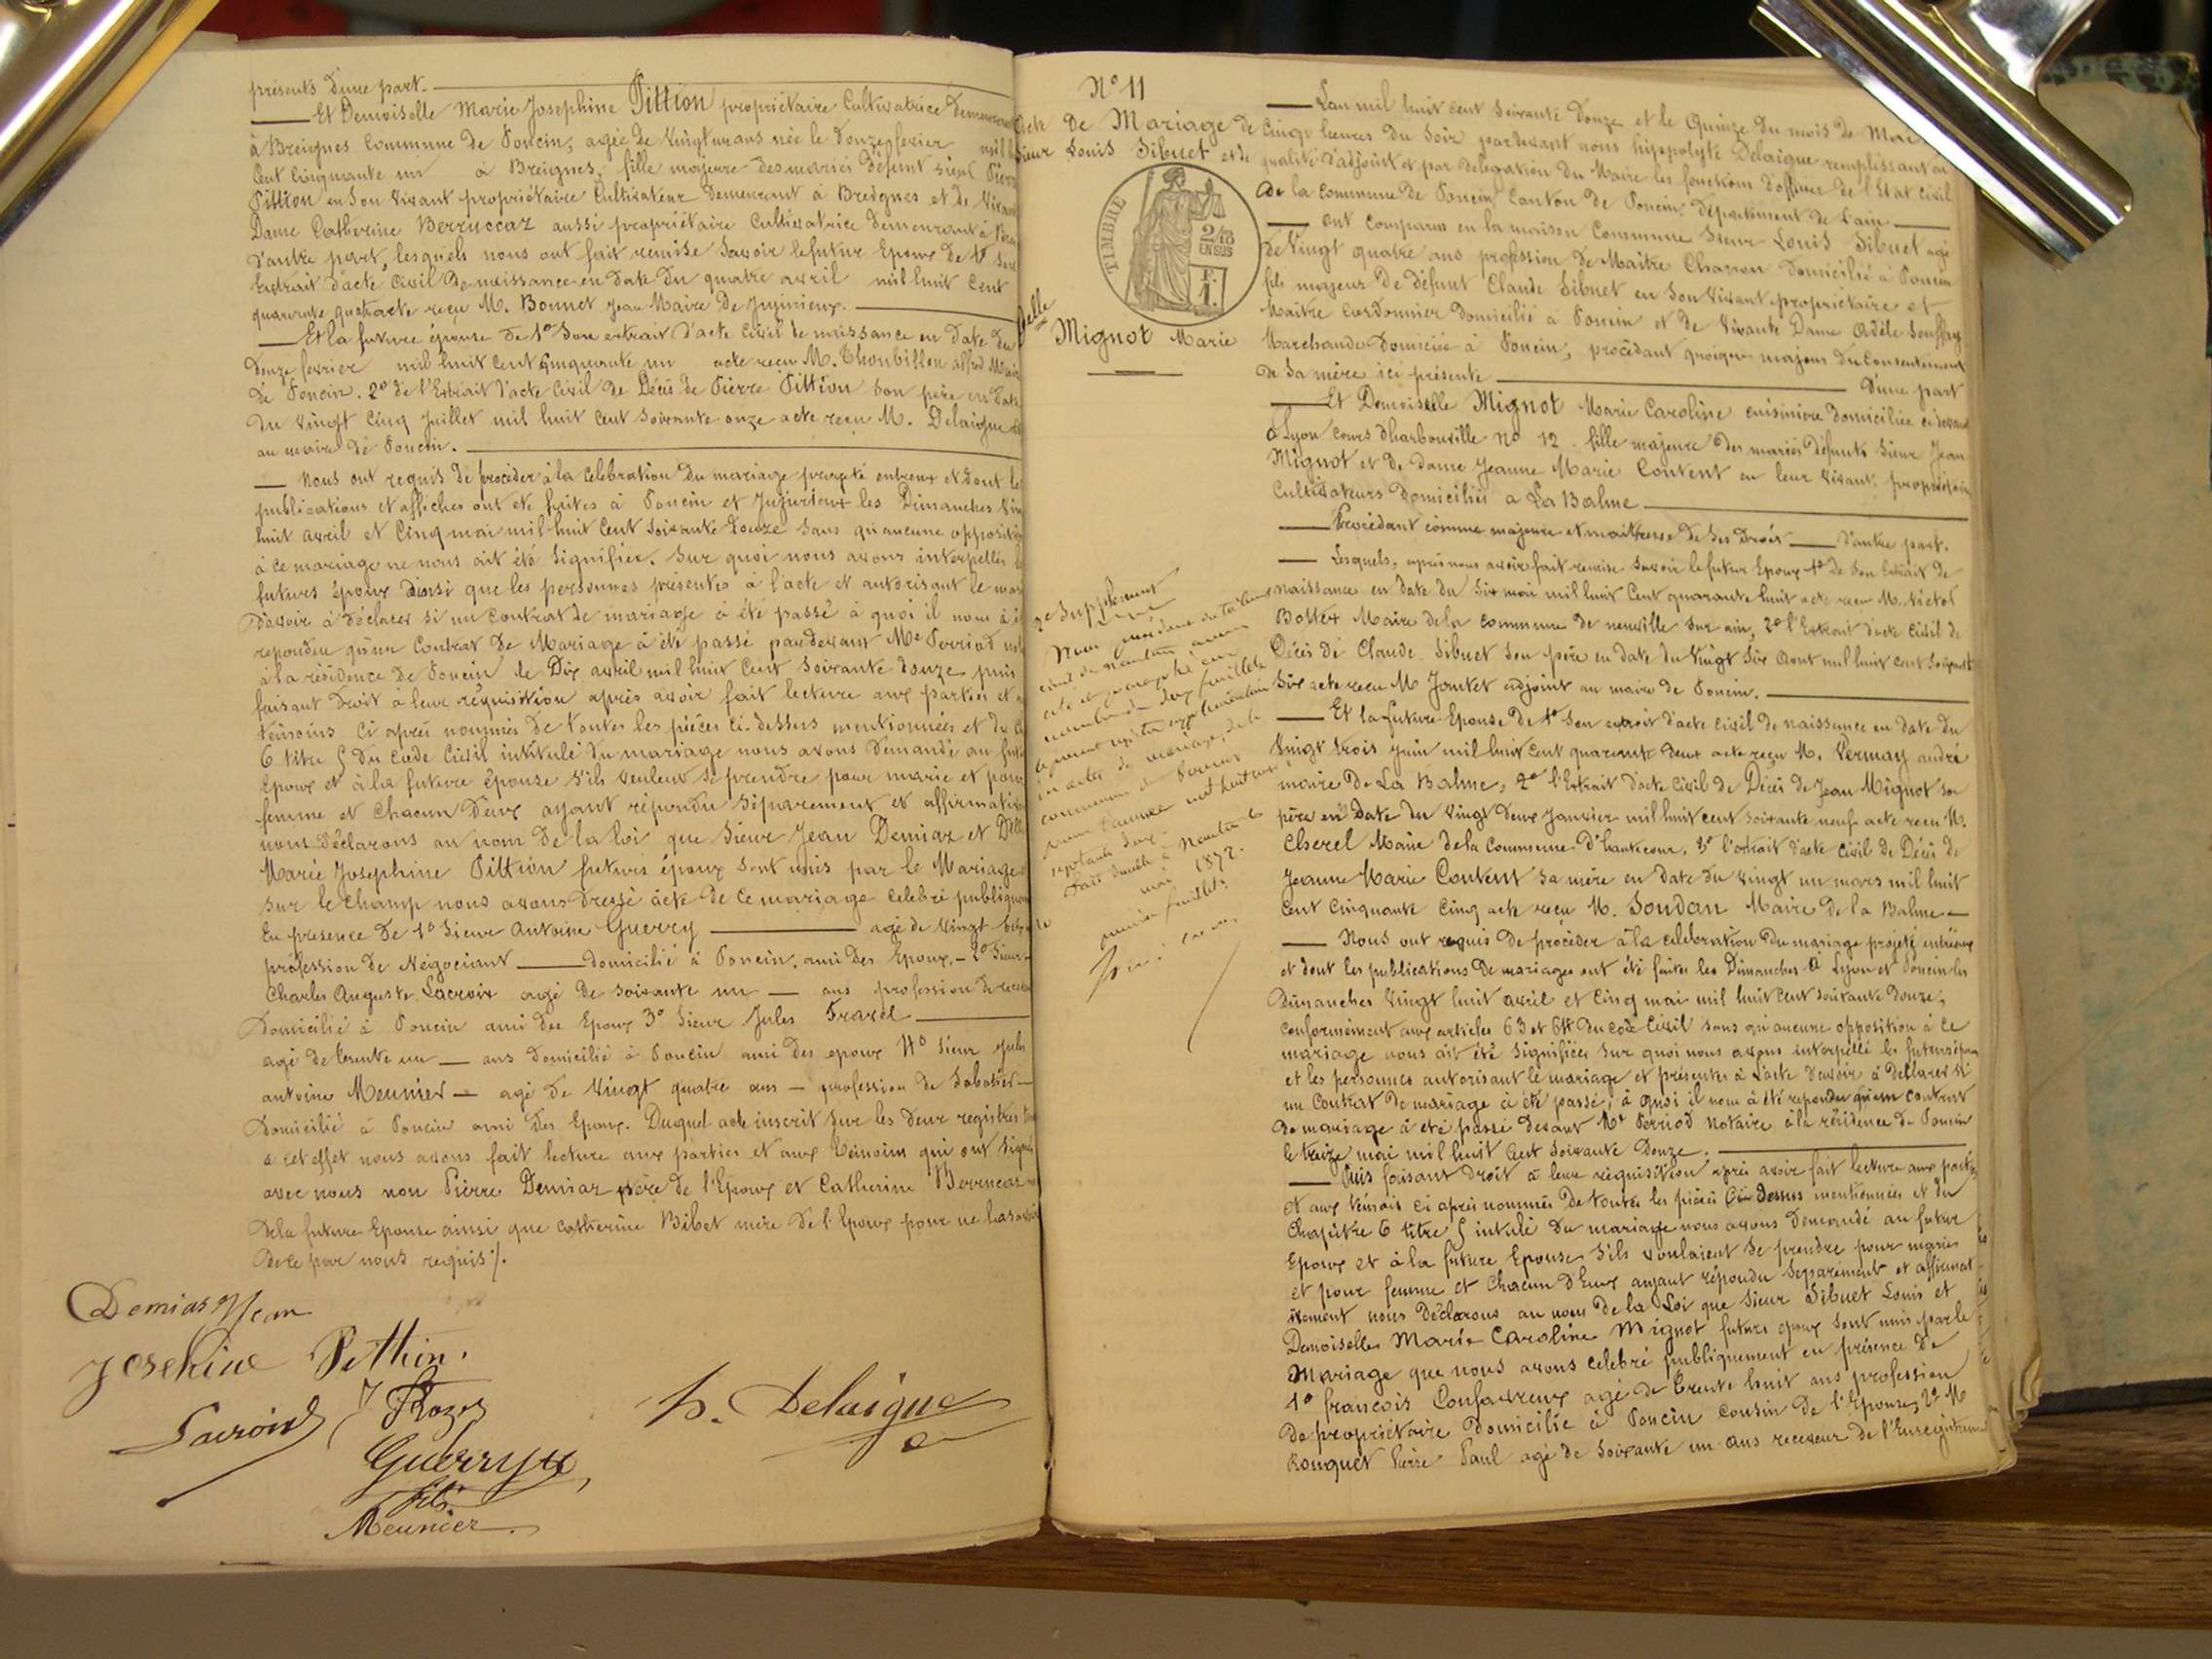 présents d'une part.
Et Demoiselle Marie Josephine Pittion propriétaire Cultivatrice demeurant
à Breignes Commune de Poncin, agée de vingt un ans née le douze fevrier mil
cent cinquante un à Breignes, fille majeure des mariés défunt sieur Pierre
Pittion en son vivant propriétaire Cultivateur demeurant à Breignes et de vivante
Dame Catherine Berruccaz aussi propriétaire Cultivatrice demeurant à
d'autre part, lesquels nous ont fait remise savoir le futur Epoux de 1° son
Extrait d'acte Civil de naissance en date du quatre avril mil huit Cent
quarante quatre acte reçu M. Bonnet Jean Maire de Jujurieux.
Et la future épouse de 1° son extrait d'acte civil de naissance en date du
douze fevrier mil huit cent cinquante un acte reçu M. Thoubillon alfred Maire
de Poncin. 2° de l'Extrait d'acte Civil de Décès de Pierre Pittion son père en date
du vingt cinq Juillet mil huit Cent soixante onze acte reçu M. Delaigue
au maire de Poncin.
Nous ont requis de procéder à la Celebration du mariage projeté entreux et dont les
publications et affiches ont été faites à Poncin et Jujurieux les Dimanches vingt
huit avril et Cinq mai mil huit Cent soixante douze sans qu'aucune opposition
à ce mariage ne nous ait été signifiée. Sur quoi nous avons interpellés les
futurs époux ainsi que les personnes présentes à l'acte et autorisant le mariage
d'avoir à déclarer si un Contrat de mariage à été passé à quoi il nous à été
repondu qu'un Contrat de Mariage à été passé pardevant Me Perriod
à la résidence de Poncin le Dix avril mil huit Cent soixante douze puis
faisant droit à leur réquisition après avoir fait lecture aux parties et
témoins ci après nommés de toutes les pièces ci-dessus mentionnées et du
6 titre 5 du Code Civil intitulé du mariage nous avons demandé au futur
Epoux et à la future épouse s'ils veulent se prendre pour marie et pour
femme et chacun d'eux ayant répondu séparement et affirmativement
nous déclarons au nom de la loi que Sieur Jean Demiaz et Delle
Marie Josephine Pittion futurs époux sont unis par le Mariage
sur le champ nous avons dressé acte de ce mariage celebré publiquement
En presence de 1° Sieur Antoine Guerry agé de vingt
profession de Négociant domicilié à Poncin, ami des Epoux. 2° Sieur
Charles Auguste Lacroix agé de soixante un ans profession de
domicilié à Poncin ami des Epoux 3° Sieur Jules Fravel
agé de trente un ans domicilié à Poncin ami des epoux 4° Sieur Jules
antoine Meunier agé de vingt quatre ans profession de Sabotier
domicilié à Poncin ami des Epoux. Duquel acte inscrit sur les deux registres
à cet effet nous avons fait lecture aux parties et aux témoins qui ont signé
avec nous non Pierre Demiaz père de l'Epoux et Catherine Berruccaz
de la future Epouse ainsi que Catherine Bibet mère de l'Epoux pour ne le savoir
de ce par nous requis /.
Demias Jean
Josephine Pithion.
Lacroix J Rozoz
Guerry
fils
Meunier.
h. Delaigue
N° 11
Acte de Mariage de
Sieur Louis Sibuet et de
TIMBRE
2/10
EN SUS
Delle
Mignot Marie
2e Supplément
commune de Poncin
mai 1872.
L'an mil huit cent soixante douze et le Quinze du mois de Mai
Cinq heures du soir pardevant nous hippolyte Delaigue remplissant en
qualité d'adjoint et par délégation du Maire les fonctions d'officier de l'Etat civil
de la commune de Poncin, Canton de Poncin, département de l'ain
ont comparus en la maison Commune Sieur Louis Sibuet agé
de vingt quatre ans profession de Maître Charron domicilié à Poncin
fils majeur de défunt Claude Sibuet en son vivant propriétaire et
Maître Cordonnier domicilié à Poncin et de vivante Dame Adèle
Marchande domiciliée à Poncin, procédant quoique majeur du Consentement
de sa mère ici présente d'une part
Et Demoiselle Mignot Marie Caroline cuisinière domiciliée ci devant
à Lyon cours d'harbouville N° 12. fille majeure des mariés défunts Sieur Jean
Mignot et de dame Jeanne Marie Content en leur vivant propriétaires
Cultivateurs domiciliés a La Balme
Procédant comme majeure et maitresse de ses droits d'autre part.
Lesquels, après nous avoir fait remise savoir le futur Epoux 1° de son Extrait de
naissance en date du Six mai mil huit Cent quarante huit acte reçu M. Victor
Bottex Maire de la commune de neuville sur ain, 2° l'Extrait d'acte civil de
Décès de Claude Sibuet son père en date du vingt six Aout mil huit cent soixante
six acte reçu M Jantet adjoint au maire de Poncin.
Et la future Epouse de 1° son extrait d'acte civil de naissance en date du
vingt trois juin mil huit cent quarante deux acte reçu M. Vernay andré
maire de La Balme, 2° l'Extrait d'acte Civil de Décès de Jean Mignot son
père en date du vingt deux Janvier mil huit cent soixante neuf acte reçu M.
Cherel Maire de la Commune d'hautecour. 3° l'extrait d'acte civil de Décès de
Jeanne Marie Content sa mère en date du vingt un mars mil huit
cent cinquante cinq acte reçu M. Soudan Maire de la Balme
Nous ont requis de procéder à la celebration du mariage projeté entreeux
et dont les publications de mariages ont été faites les Dimanches à Lyon et Poncin les
dimanches vingt huit avril et cinq mai mil huit cent soixante douze,
conformément aux articles 63 et 64 du code Civil sans qu'aucune opposition à ce
mariage nous ait été signifiée sur quoi nous avons interpellé les futurs époux
et les personnes autorisant le mariage et présentes à l'acte d'avoir à déclarer si
un Contrat de mariage à été passé, à quoi il nous à été repondu qu'un contrat
de mariage à été passé devant Me Perriod Notaire à la résidence de Poncin
le treize mai mil huit cent soixante douze.
Puis faisant droit à leur réquisition après avoir fait lecture aux parties
et aux témoins ci après nommés de toutes les pièces ci dessus mentionnées et du
Chapitre 6 titre 5 intulé du mariage nous avons demandé au futur
Epoux et à la future Epouse s'ils voulaient se prendre pour maries
et pour femme et chacun d'Eux ayant répondu séparément et affirmat-
ivement nous déclarons au nom de la Loi que Sieur Sibuet Louis et
Demoiselle Marie Caroline Mignot futurs epoux sont unis par le
Mariage que nous avons celebré publiquement en présence de
1° francois Confavreux agé de trente huit ans profession
de propriétaire domicilié à Poncin cousin de l'Epouse, 2° M
Rouquet Pierre Paul agé de soixante un ans receveur de l'Enregistrem